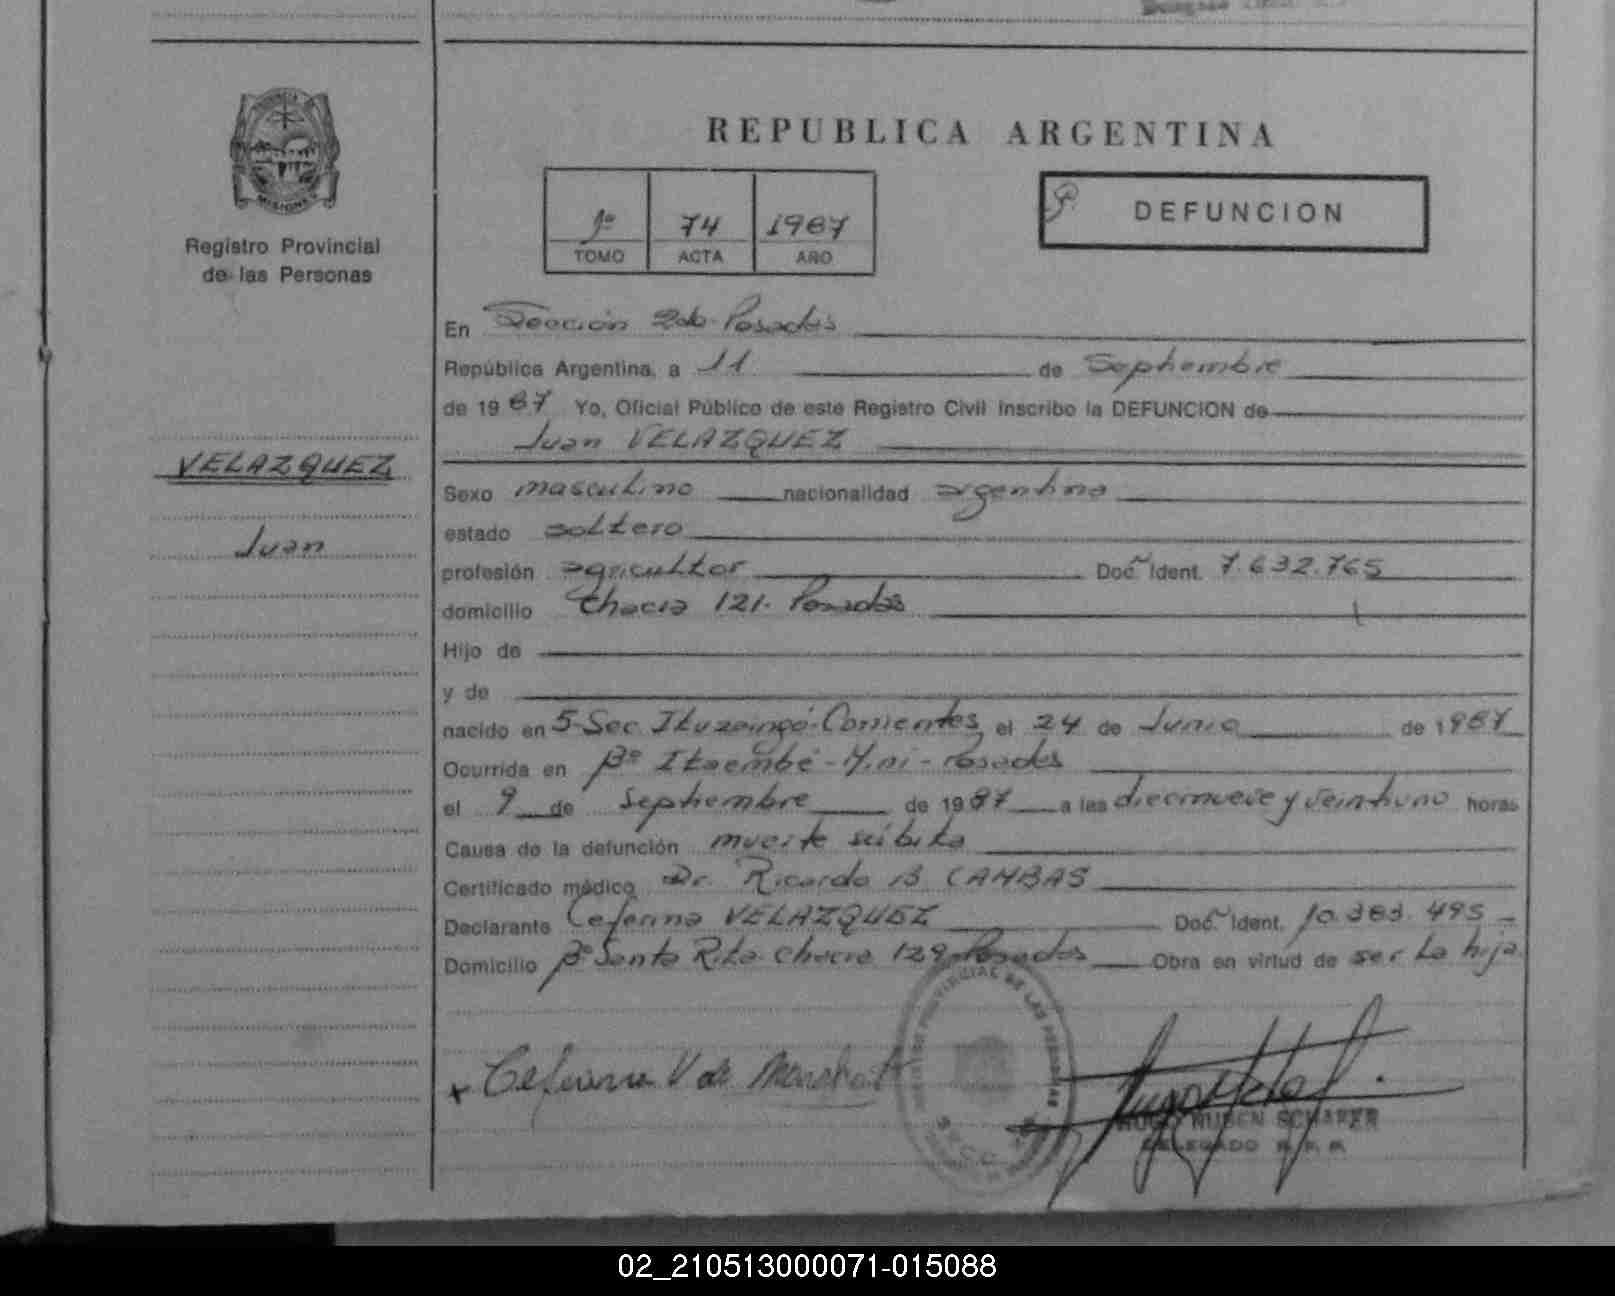 REPUBLICA ARGENTINA
PROVINCIA DE
MISIONES
Registro Provincial
de las Personas
1º 74 1987
TOMO ACTA AÑO
DEFUNCION
En Sección 2da Posadas
República Argentina, a 11 de Septiembre
de 1987 Yo, Oficial Público de este Registro Civil inscribo la DEFUNCION de
Juan VELAZQUEZ
VELAZQUEZ
Juan
Sexo masculino nacionalidad argentina
estado soltero
profesión agricultor Doc. Ident. 7.632.765
domicilio Chacra 121. Posadas
Hijo de
y de
nacido en 5 Sec. Ituzaingó-Corrientes el 24 de Junio de 1987
Ocurrida en Bº Itaembé-Mini-Posadas
el 9 de Septiembre de 1987 a las diecinueve y veintiuno horas
Causa de la defunción muerte súbita
Certificado médico Dr. Ricardo B CAMBAS
Declarante Ceferina VELAZQUEZ Doc. Ident. 10.383.495
Domicilio Bº Santa Rita Chacra 129 Posadas Obra en virtud de ser la hija.
Ceferina V de
PROVINCIAL DE LAS PERSONAS
HUGO RUBEN SCHAFER
DELEGADO R. P. P.
02_210513000071-015088